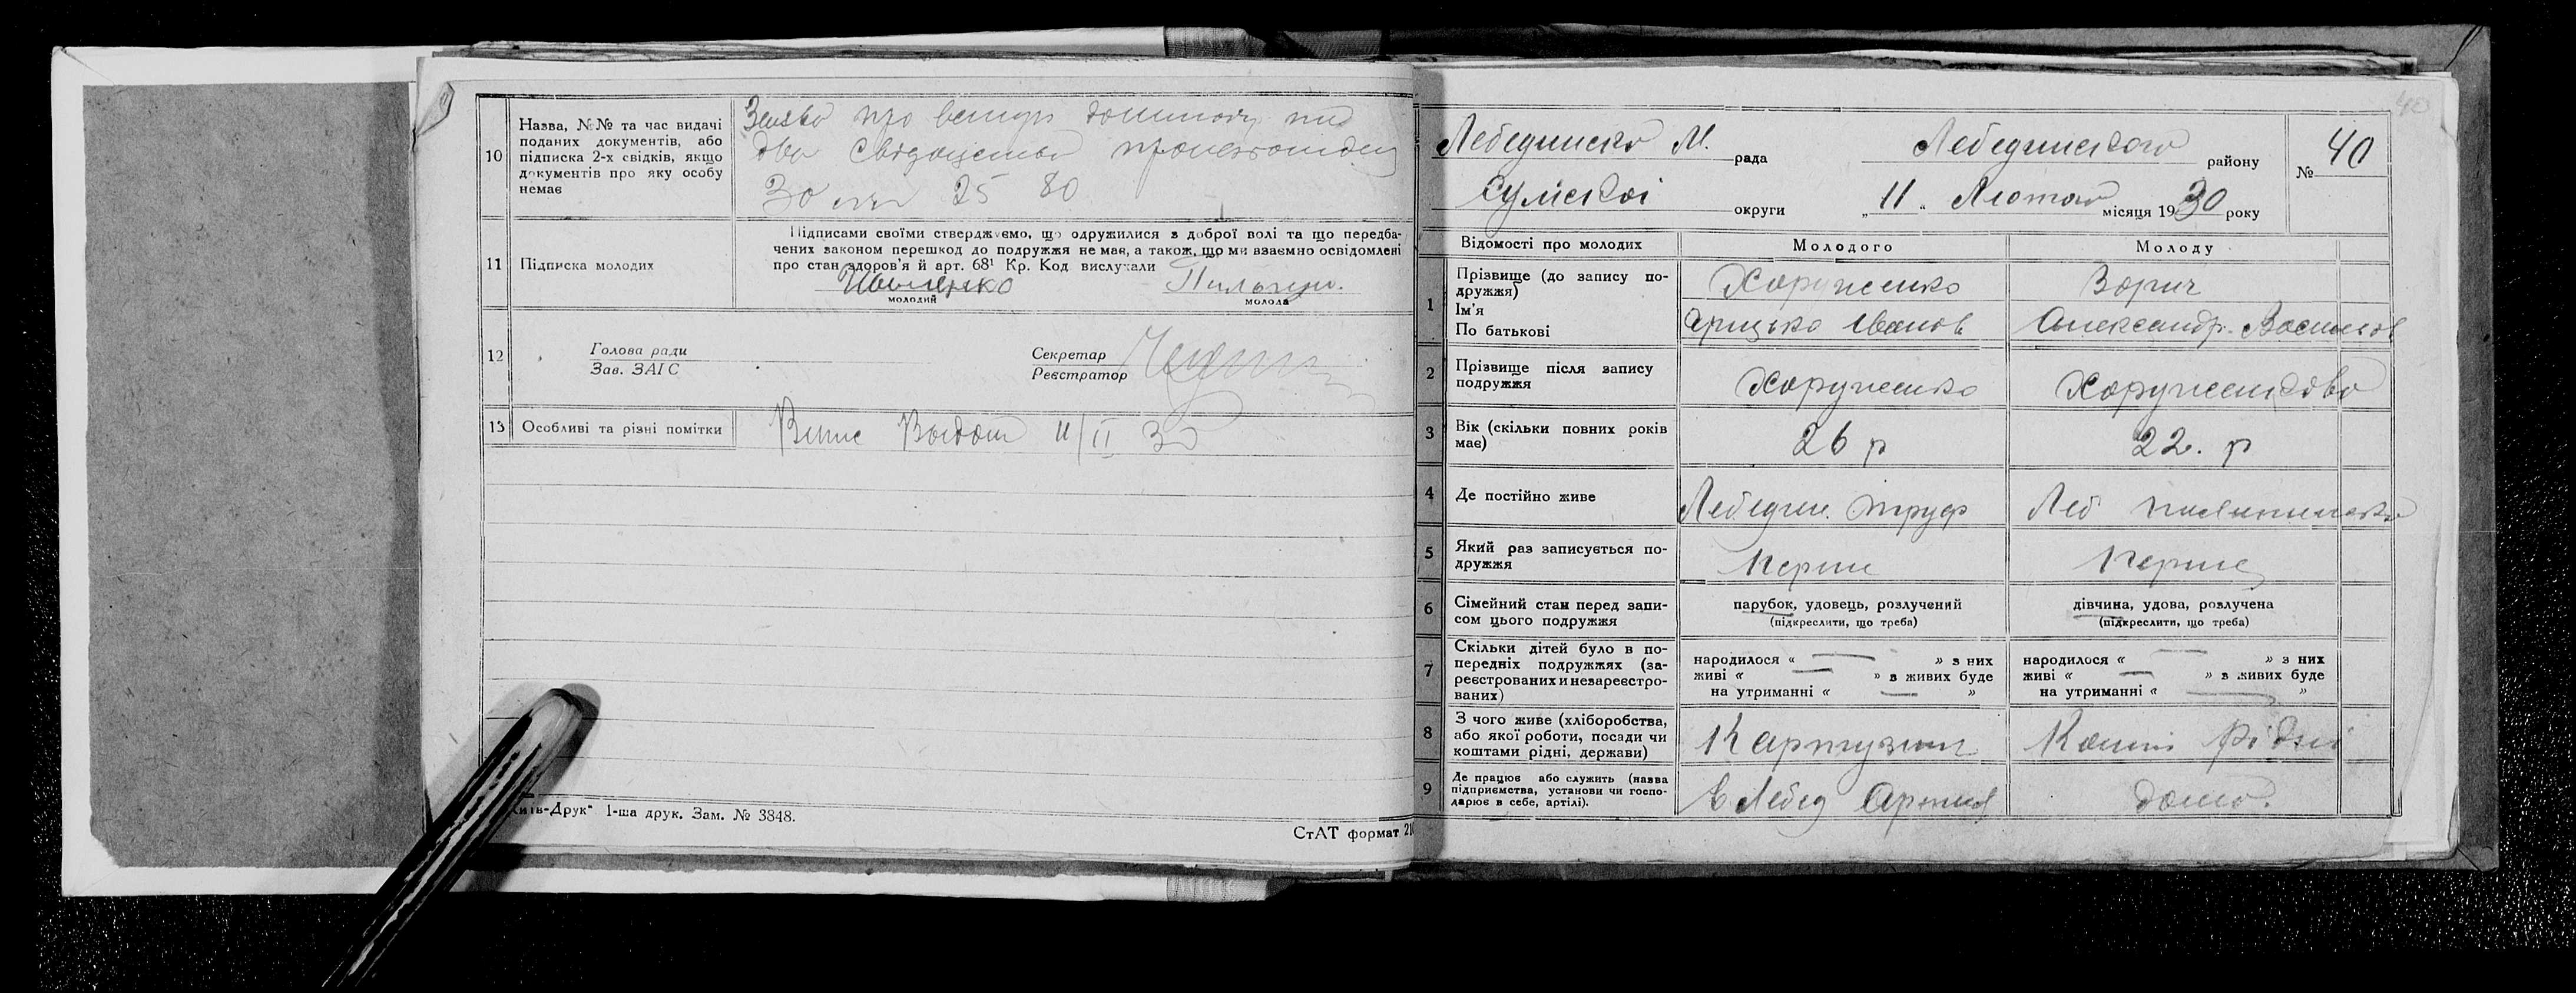 10
Назва, №№ та час видачі
поданих документів, або
підписка 2-х свідків, якщо
документів про яку особу
немає
про
два
25 80
11
Підписка молодих
Підписами своїми стверджуємо, що одружилися з доброї волі та що передба-
чених законом перешкод до подружжя не має, а також, що ми взаємно освідомлені
про стан здоров'я й арт. 68¹ Кр. Код вислухали
молодий
молода
12
Голова ради
Зав. ЗАГС
Секретар
Реєстратор
13
Особливі та різні помітки
11/II 30
Київ-Друк" 1-ша друк. Зам. № 3848.
СтАТ формат 210
40
Лебединска М. рада
Лебединського району
№ 40
Сумської округи
„ 11 „ Лютого місяця 1930 року
Відомості про молодих
Молодого
Молоду
1
Прізвище (до запису по-
дружжя)
Ім'я
По батькові
Хоруженко
Грицько Іванов
Зорич
Александр. Васильов
2
Прізвище після запису
подружжя
Хоруженко
Хоруженкова
3
Вік (скільки повних років
має)
26 р
22. р
4
Де постійно живе
Лебедин.
Леб
5
Який раз записується по-
дружжя
Перше
Перше
6
Сімейний стан перед запи-
сом цього подружжя
парубок, удовець, розлучений
(підкреслити, що треба)
дівчина, удова, розлучена
(підкреслити, що треба)
7
Скільки дітей було в по-
передніх подружжях (за-
реєстрованих и незареєстро-
ваних)
народилося « — » з них
живі « — » в живих буде
на утриманні « — »
народилося « — » з них
живі « — » в живих буде
на утриманні « — »
8
З чого живе (хліборобства,
або якої роботи, посади чи
коштами рідні, держави)
Картузник
Кошти рідні
9
Де працює або служить (назва
підприємства, установи чи госпо-
дарює в себе, артілі).
В Лебед Артил
дома.